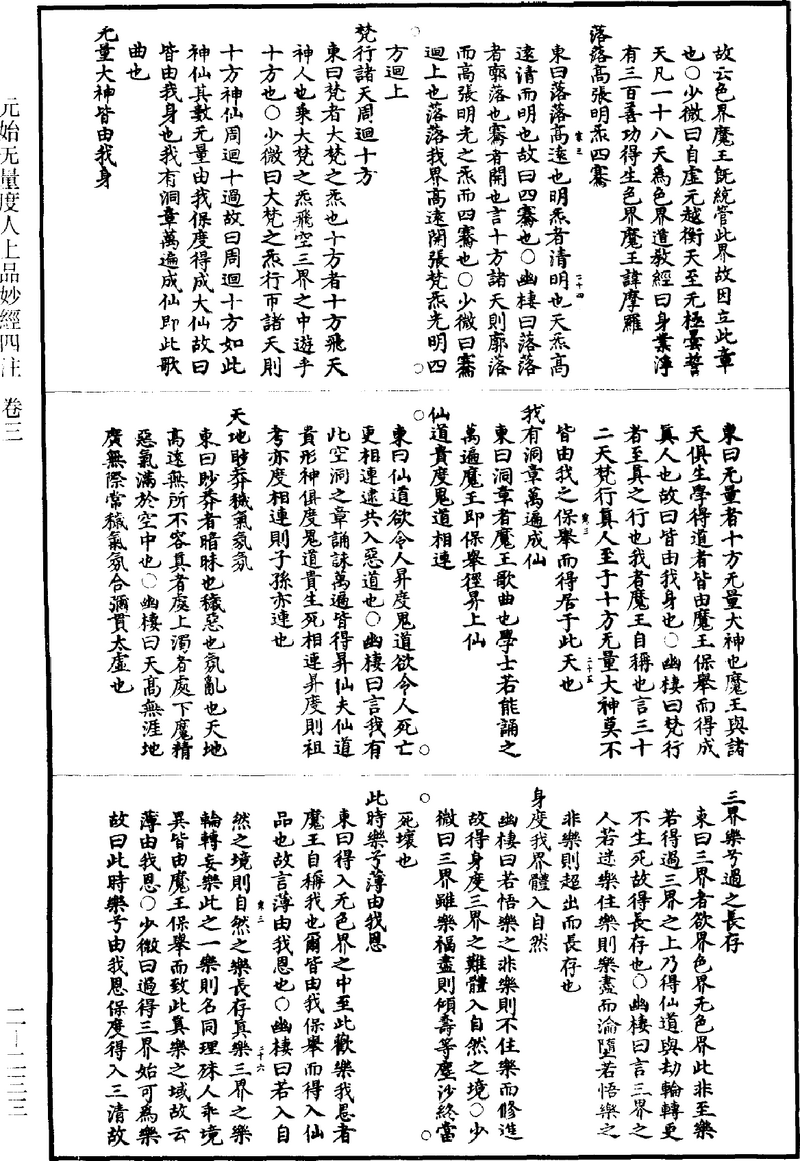 元始无量度人上品妙經四注 卷三
二—二三三
故云色界魔王旣統管此界故因立此章
也○少微曰自虛无越衡天至无極曇誓
天凡一十八天爲色界道教經曰身業淨
有三百善功得生色界魔王諱摩羅
落落高張明炁四騫
東曰落落高遠也明炁者清明也天炁高
遠清而明也故曰四騫也○幽棲曰落落
者廓落也騫者開也言十方諸天則廓落
而高張明光之炁而四騫也○少微曰騫
迴上也落落我界高遠開張梵炁光明四
方迴上
梵行諸天周迴十方
東曰梵者大梵之炁也十方者十方飛天
神人也乘大梵之炁飛空三界之中遊乎
十方也○少微曰大梵之炁行帀諸天則
十方神仙周迴十過故曰周迴十方如此
神仙其數无量由我保度得成大仙故曰
皆由我身也我有洞章萬遍成仙即此歌
曲也
无量大神皆由我身
卷三
二十四
東曰无量者十方无量大神也魔王與諸
天俱生學得道者皆由魔王保舉而得成
真人也故曰皆由我身也○幽棲曰梵行
者至真之行也我者魔王自稱也言三十
二天梵行真人至于十方无量大神莫不
皆由我之保舉而得居于此天也
我有洞章萬遍成仙
東曰洞章者魔王歌曲也學士若能誦之
萬遍魔王即保舉徑昇上仙
仙道貴度鬼道相連
東曰仙道欲令人昇度鬼道欲令人死亡
更相連逮共入惡道也○幽棲曰言我有
此空洞之章誦詠萬遍皆得昇仙夫仙道
貴形神俱度鬼道貴生死相連昇度則祖
考亦度相連則子孫亦連也
天地眇莽穢氣氛氛
東曰眇莽者暗昧也穢惡也氛亂也天地
高遠無所不容真者處上濁者處下魔精
惡氣滿於空中也○幽棲曰天高無涯地
廣無際常穢氣氛合彌貫太虛也
卷三
二十五
三界樂兮過之長存
東曰三界者欲界色界无色界此非至樂
若得過三界之上乃得仙道與劫輪轉更
不生死故得長存也○幽棲曰言三界之
人若迷樂住樂則樂盡而淪墮若悟樂之
非樂則超出而長存也
身度我界體入自然
幽棲曰若悟樂之非樂則不住樂而修進
故得身度三界之難體入自然之境○少
微曰三界雖樂福盡則傾壽等塵沙終當
死壞也
此時樂兮薄由我恩
東曰得入无色界之中至此歡樂我恩者
魔王自稱我也爾皆由我保舉而得入仙
品也故言薄由我恩也○幽棲曰若入自
然之境則自然之樂長存真樂三界之樂
輪轉妄樂此之一樂則名同理殊人乖境
異皆由魔王保舉而致此真樂之域故云
薄由我恩○少微曰過得三界始可爲樂
故曰此時樂兮由我恩保度得入三清故
卷三
二十六